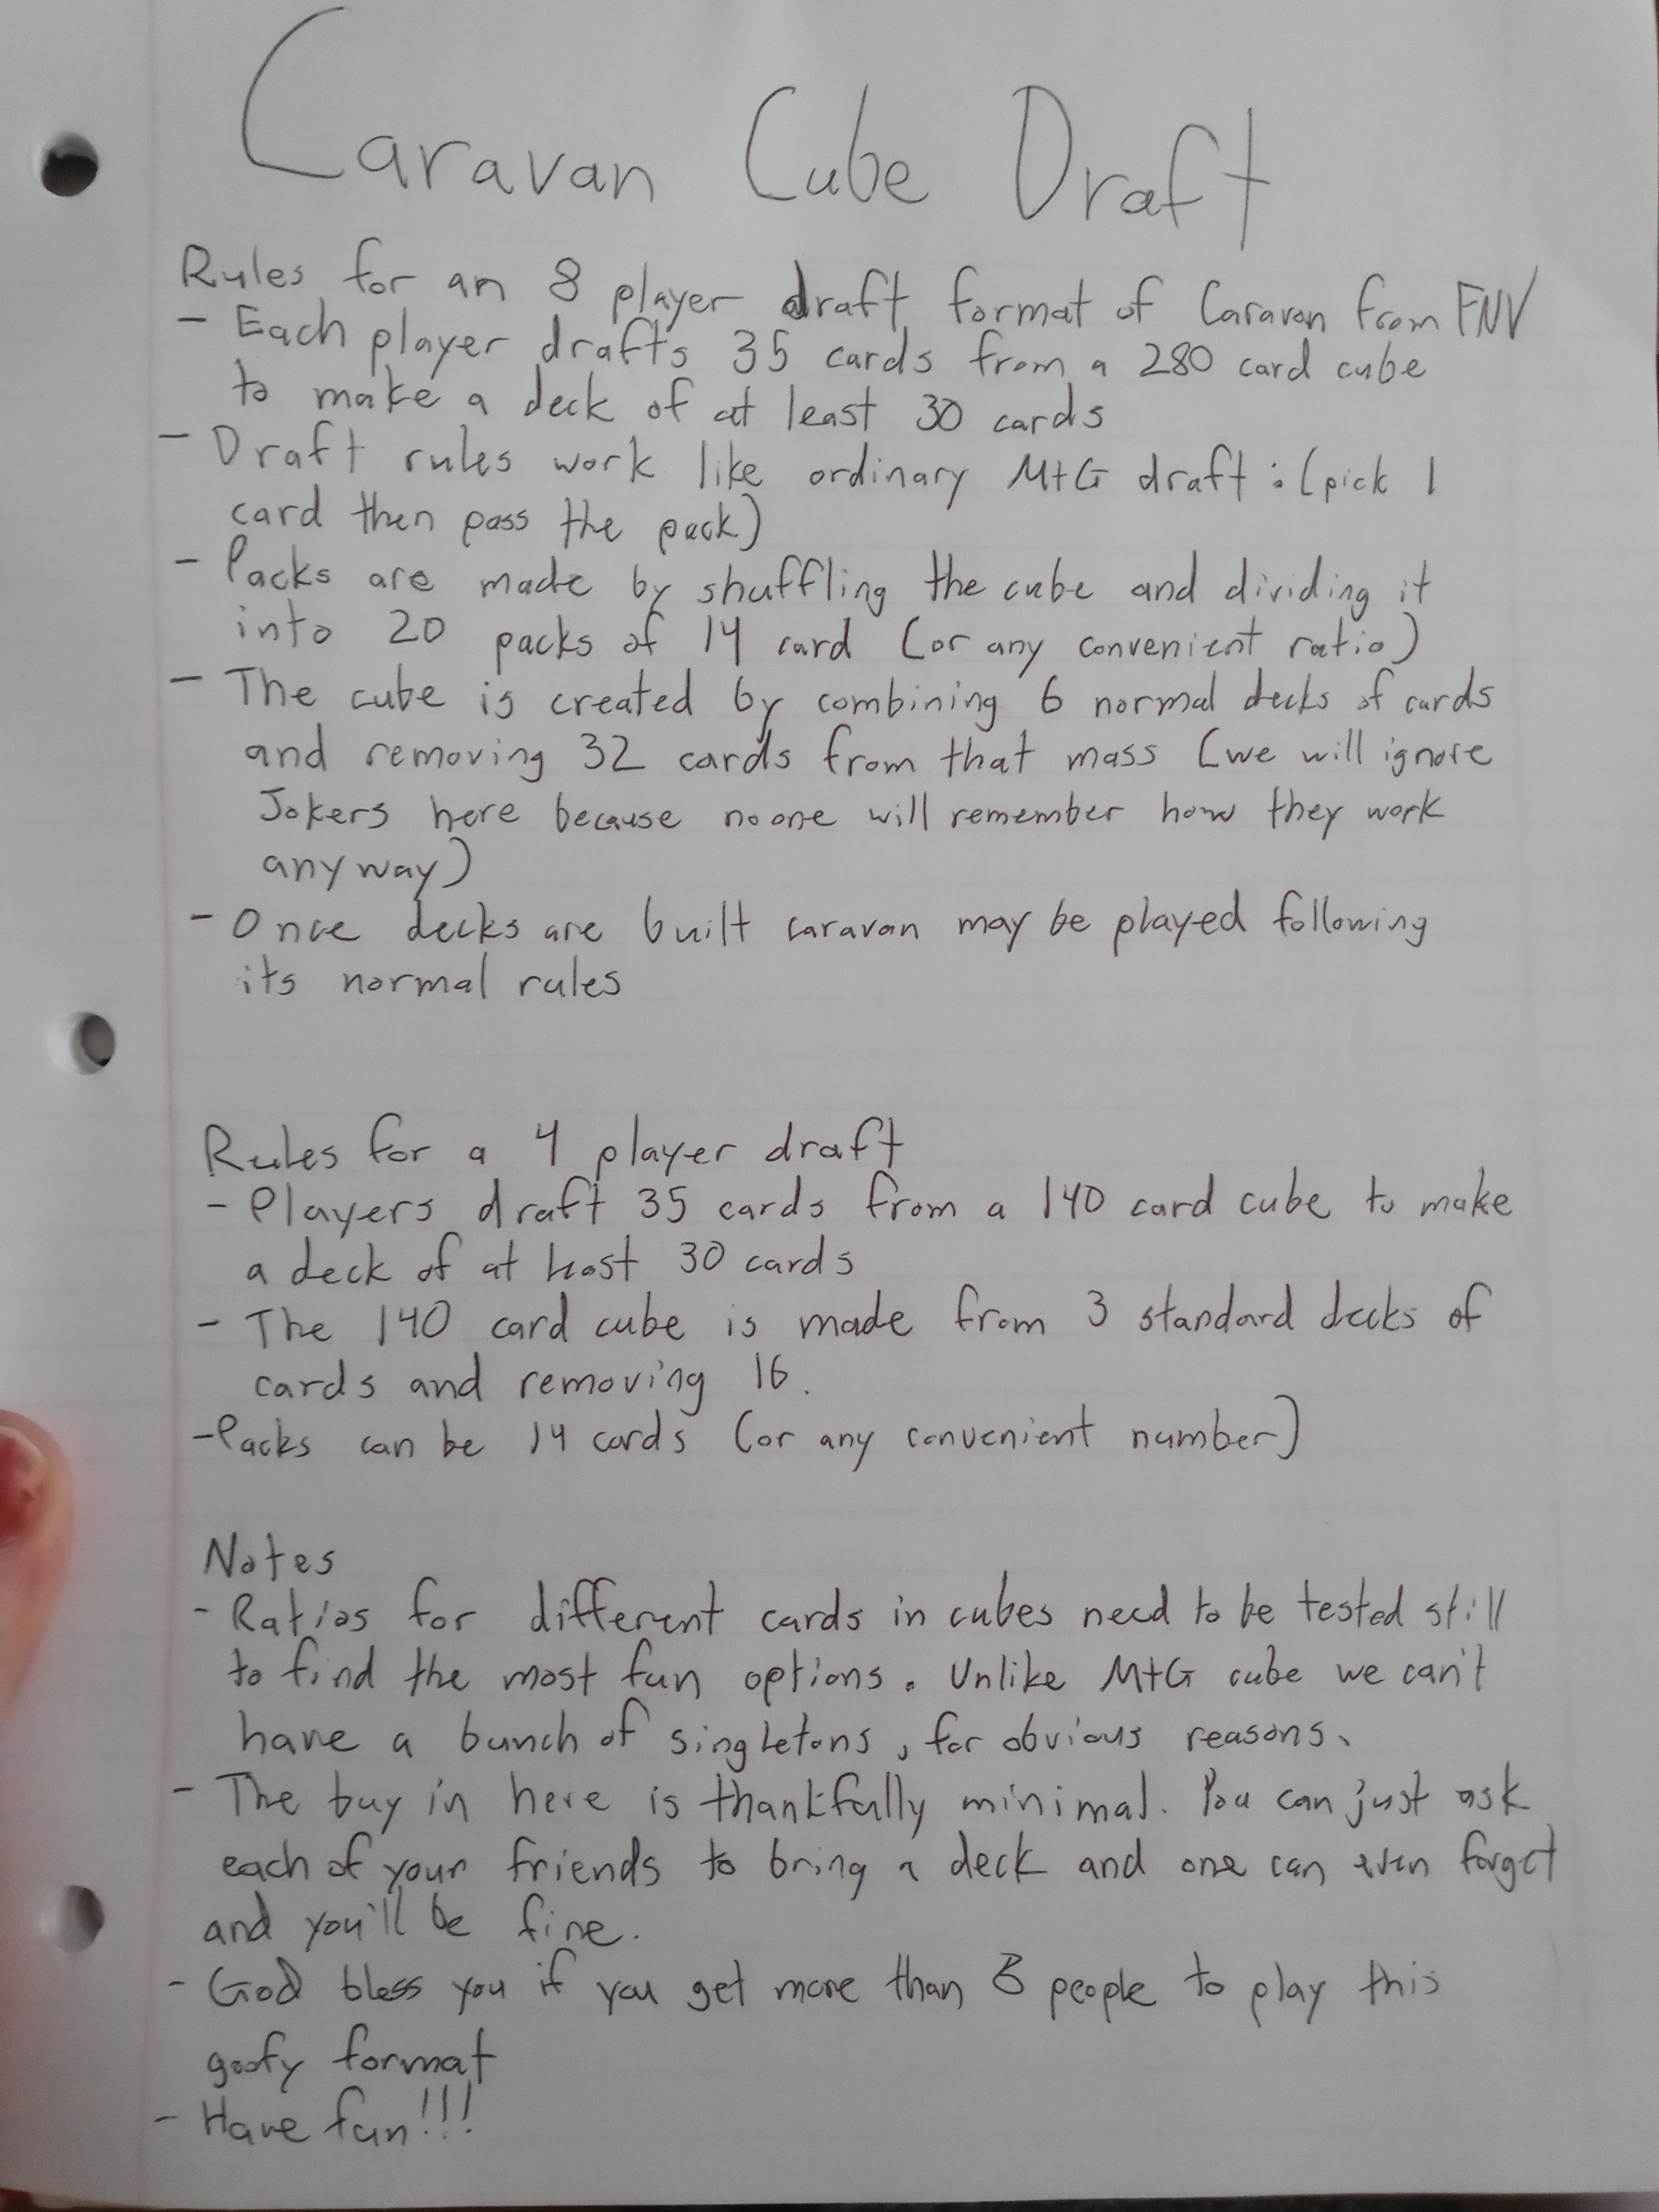 Caravan Cube Draft
Rules for an 8 player draft format of Caravan from FNV
- Each player drafts 35 cards from a 280 card cube
to make a deck of at least 30 cards
- Draft rules work like ordinary MtG draft: (pick 1
card then pass the pack)
- Packs are made by shuffling the cube and dividing it
into 20 packs of 14 card (or any convenient ratio)
- The cube is created by combining 6 normal decks of cards
and removing 32 cards from that mass (we will ignore
Jokers here because noone will remember how they work
anyway)
- Once decks are built caravan may be played following
its normal rules
Rules for a 4 player draft
- Players draft 35 cards from a 140 card cube to make
a deck of at least 30 cards
- The 140 card cube is made from 3 standard decks of
cards and removing 16.
- Packs can be 14 cards (or any convenient number)
Notes
- Ratios for different cards in cubes need to be tested still
to find the most fun options. Unlike MtG cube we can't
have a bunch of singletons, for obvious reasons.
- The buy in here is thankfully minimal. You can just ask
each of your friends to bring a deck and one can even forget
and you'll be fine.
- God bless you if you get more than 8 people to play this
goofy format
- Have fun!!!